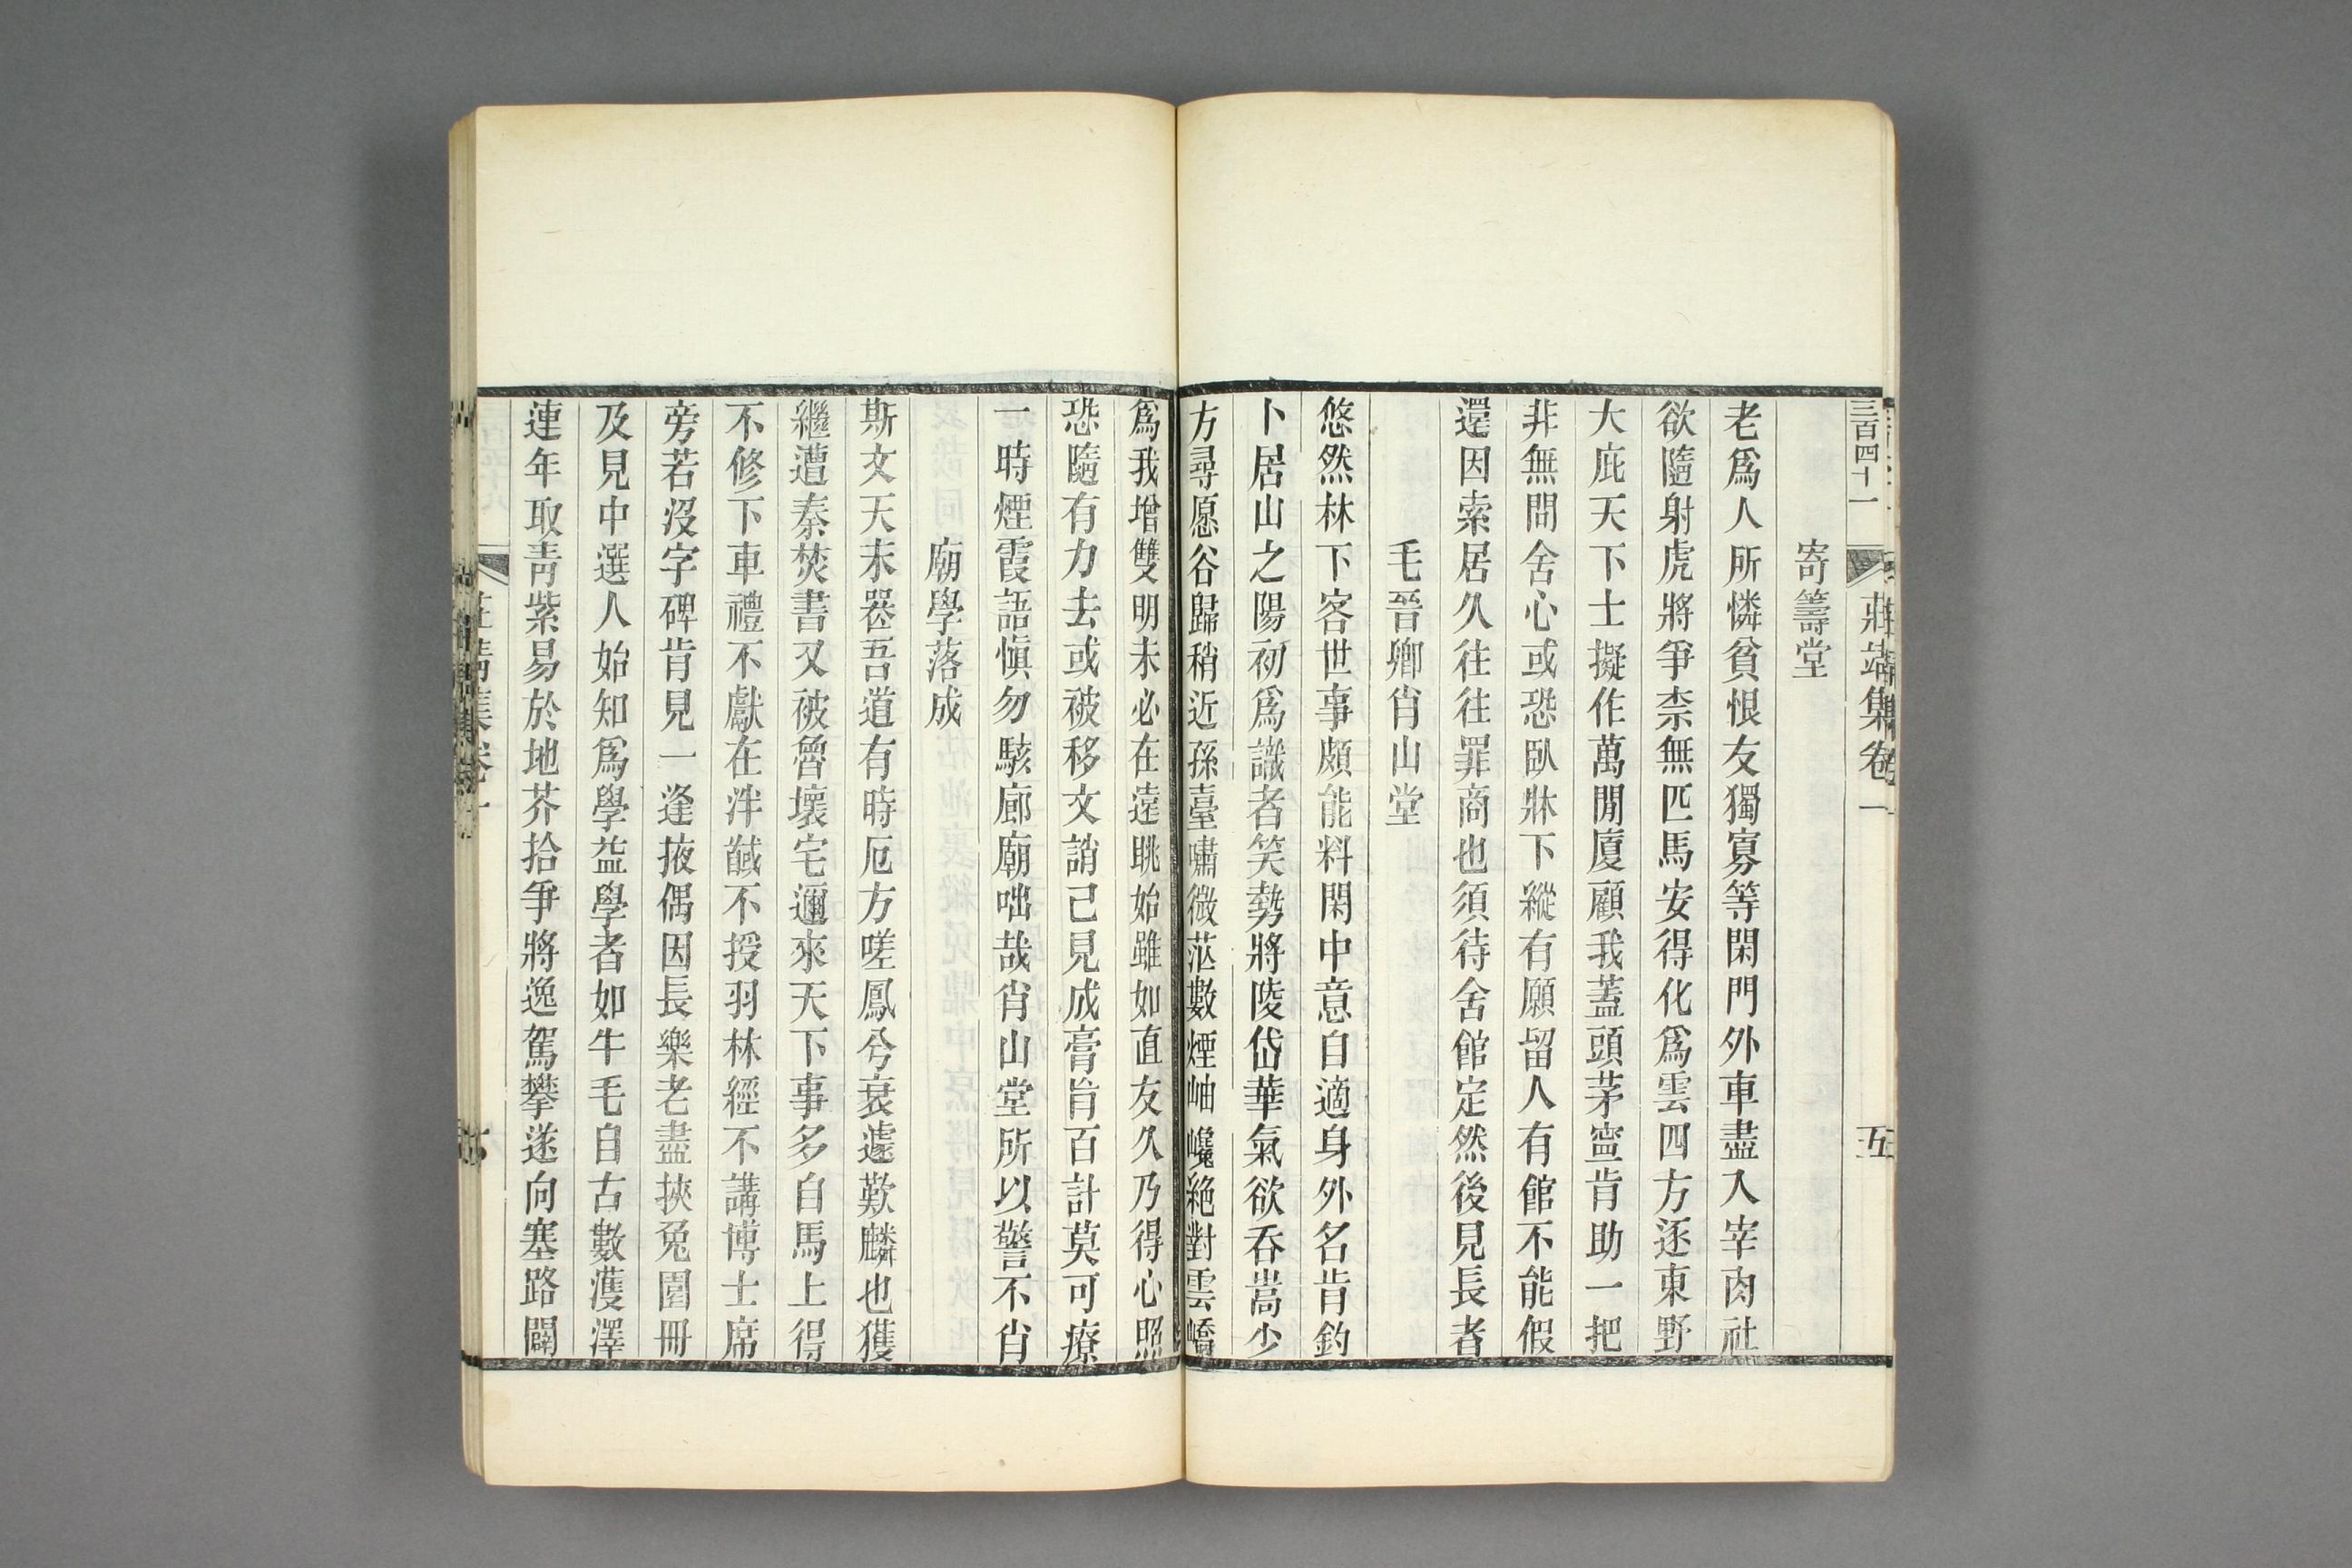 三百四十一
莊靖集卷一
五
寄籌堂
老爲人所憐貧恨友獨寡等閑門外車盡入宰肉社
欲隨射虎將爭柰無匹馬安得化爲雲四方逐東野
大庇天下士擬作萬閒廈顧我蓋頭茅寍肯助一把
非無閒舍心或恐臥牀下縱有願留人有館不能假
還因索居久往往罪商也須待舍館定然後見長者
毛晉卿肖山堂
悠然林下客世事頗能料閑中意自適身外名肯釣
卜居山之陽初爲識者笑勢將陵岱華氣欲吞嵩少
方尋愿谷歸稍近孫臺嘯微茫數煙岫巉絕對雲嶠
爲我增雙明未必在遠眺始雖如直友久乃得心照
恐隨有力去或被移文誚己見成膏肓百計莫可療
一時煙霞語愼勿駭廊廟咄哉肖山堂所以警不肖
廟學落成
斯文天未喪吾道有時厄方嗟鳳兮衰遽歎麟也獲
繼遭秦焚書又被魯壞宅邇來天下事多自馬上得
不修下車禮不獻在泮馘不授羽林經不講博士席
旁若沒字碑肯見一逢掖偶因長樂老盡挾兔園冊
及見中選人始知爲學益學者如牛毛自古數濩澤
連年取靑紫易於地芥拾爭將逸駕攀遂向塞路闢
莊靖集卷一